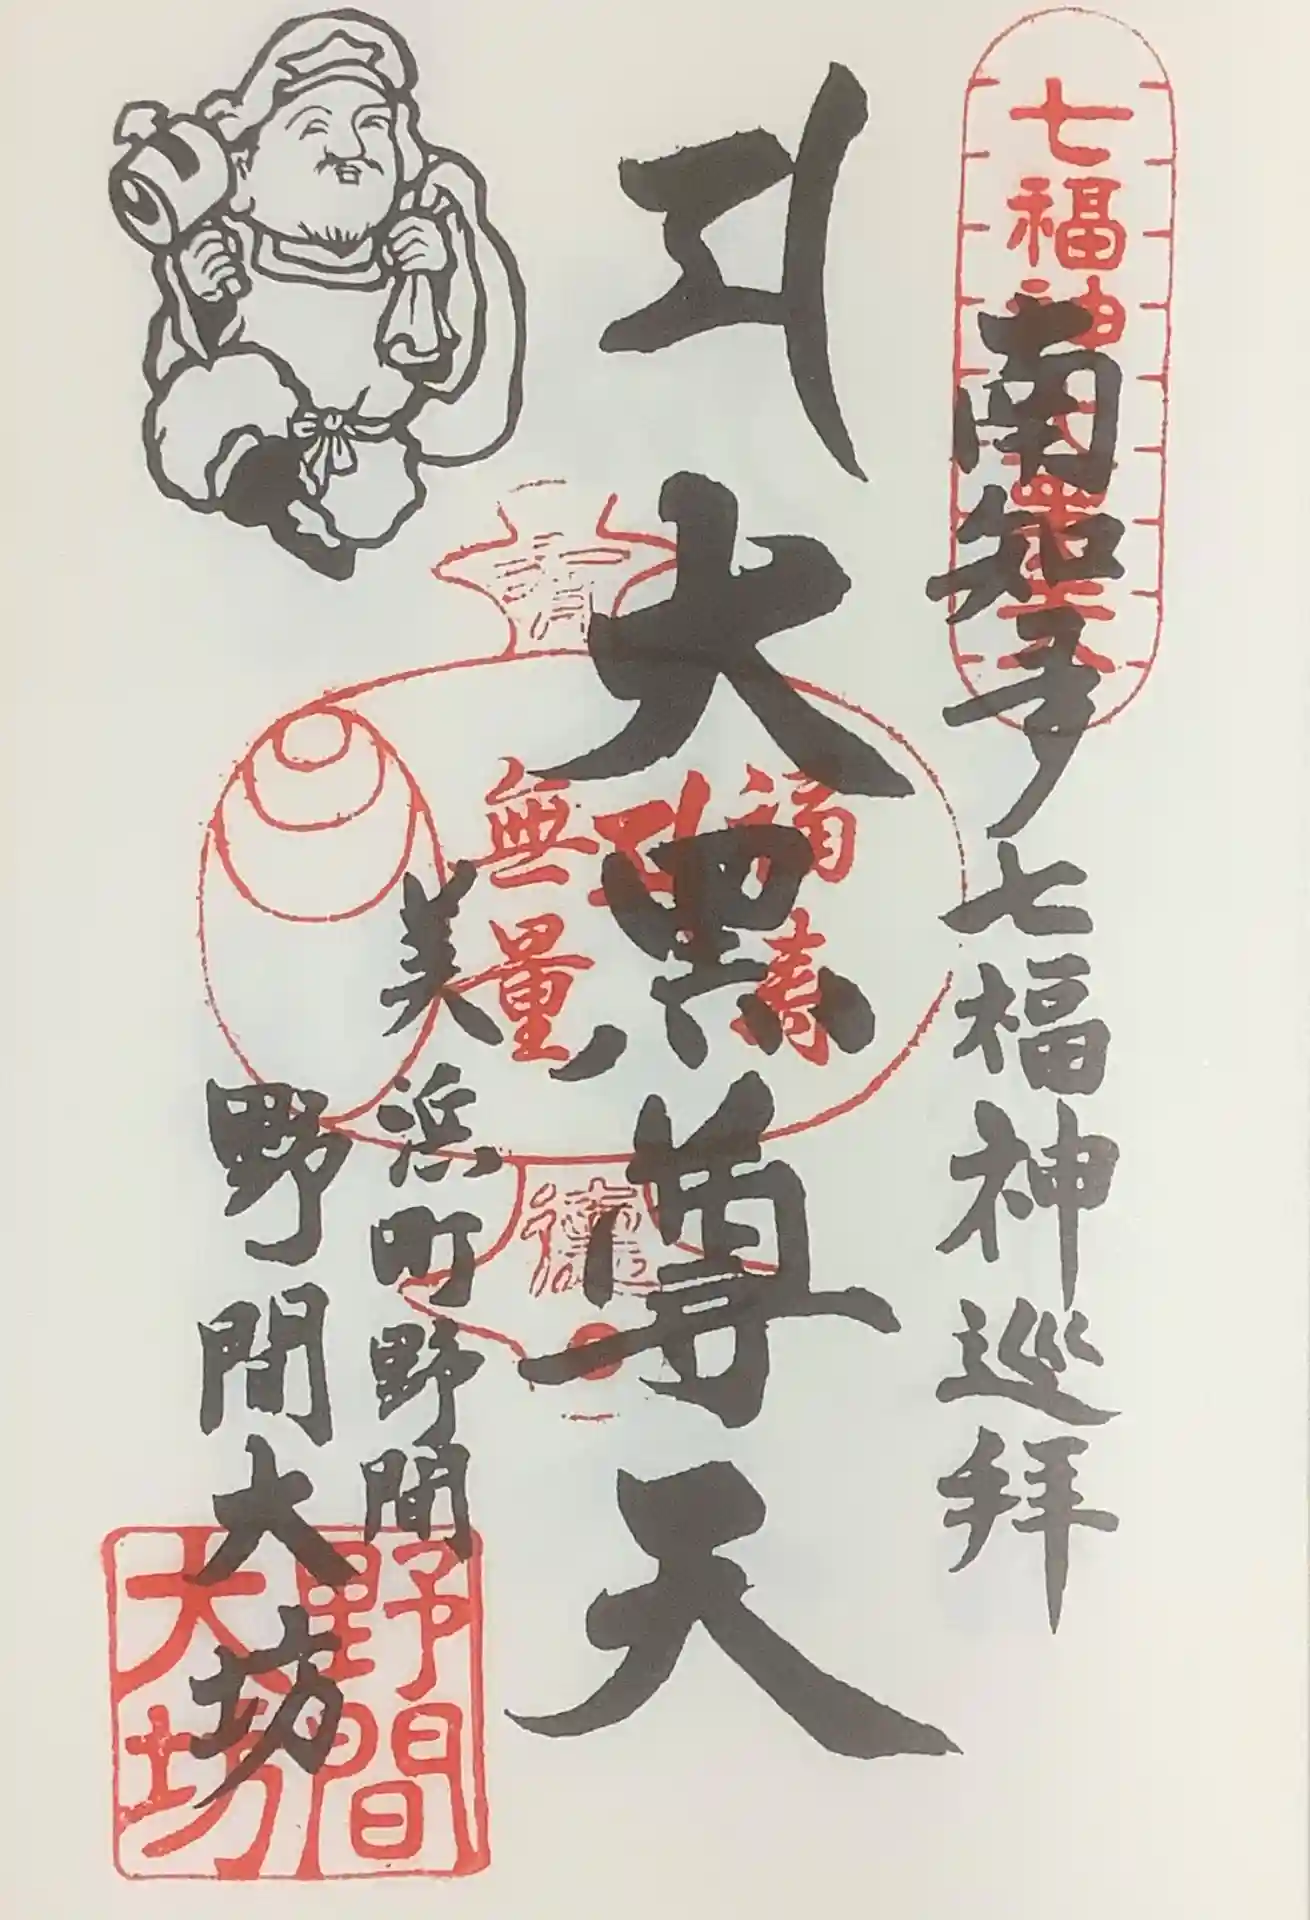 七福神
南知多七福神巡拝
大黒尊天
福寿
無量
清
徳
美浜町野間
野間大坊
野間
大坊